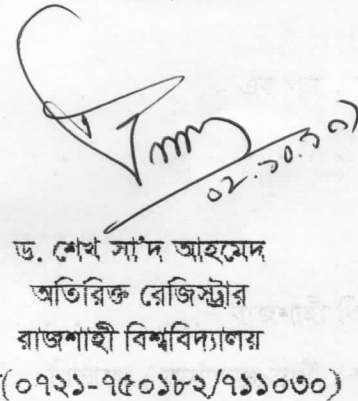 ড. শেখ সা'দ আহমেদ
অতিরিক্ত রেজিস্ট্রার
রাজশাহী বিশ্ববিদ্যালয়
(০৭২১-৭৫০১৮২/৭১১০৩০)